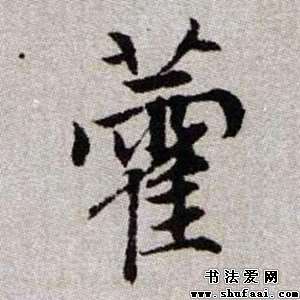 藿
书法爱网
www.shufaai.com